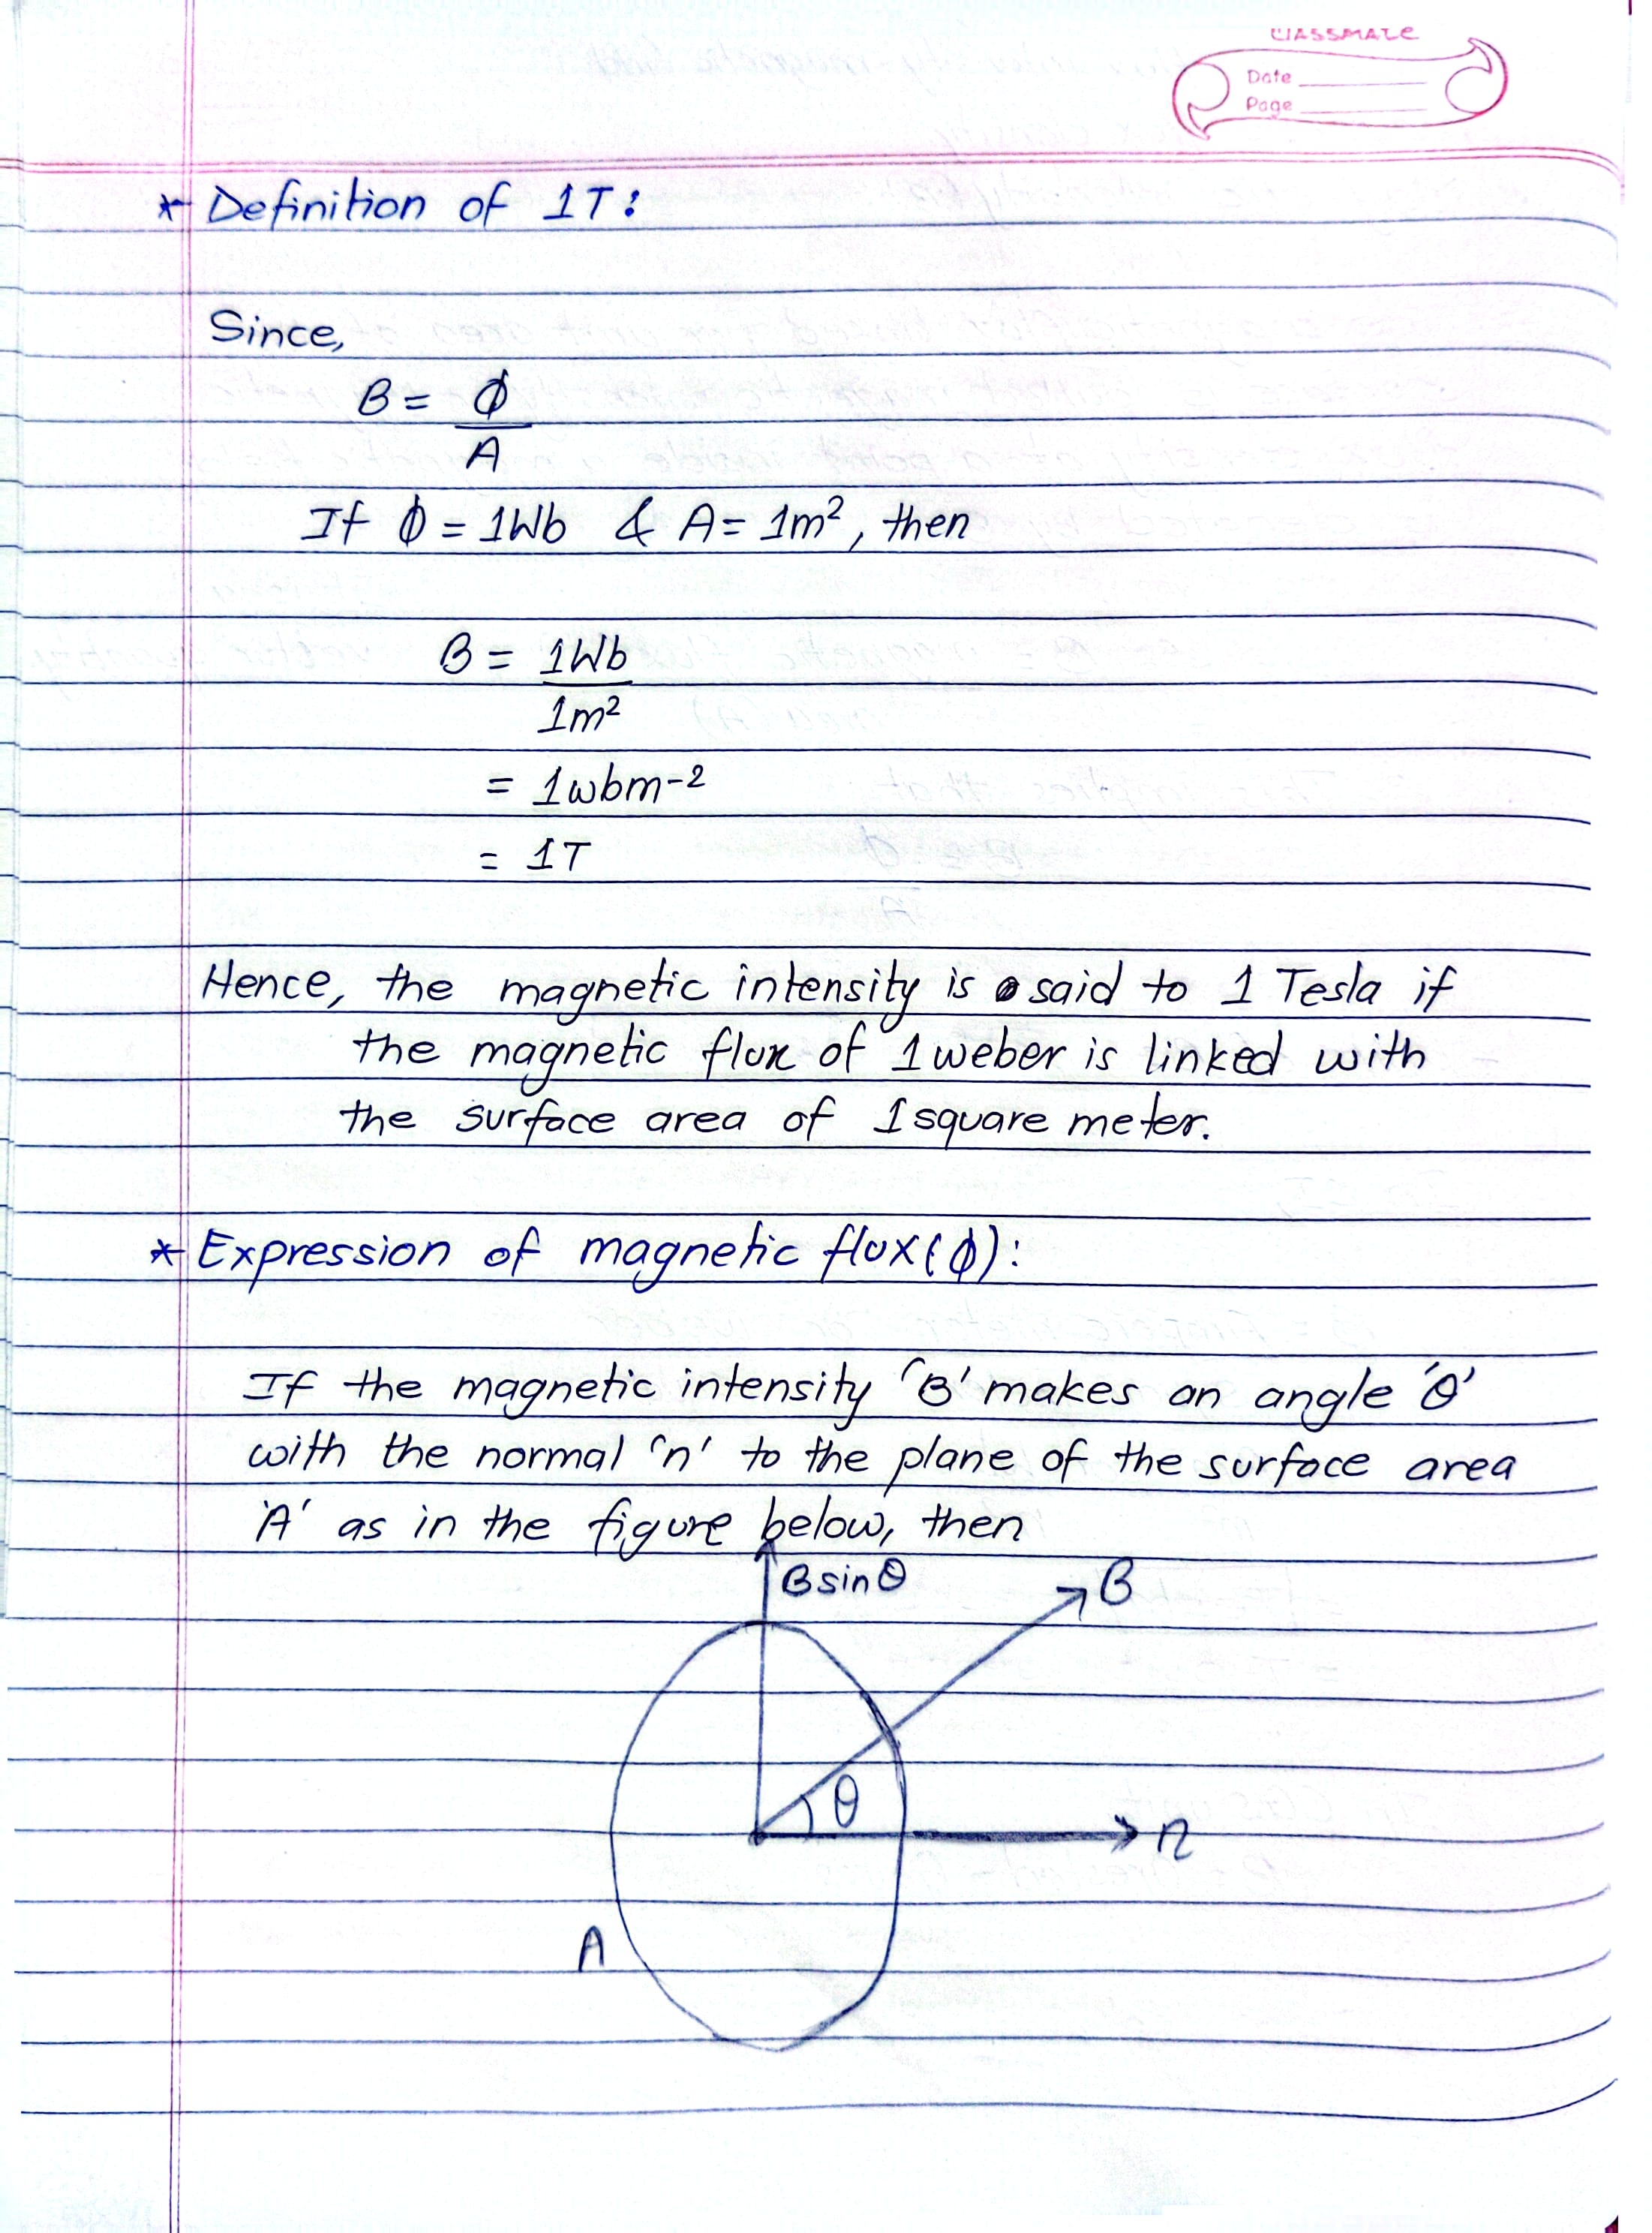 classmate
Date
Page
* Definition of 1T:
Since,
B = ϕ
A
If ϕ = 1Wb & A = 1m², then
B = 1Wb
1m²
= 1wbm-2
= 1T
Hence, the magnetic intensity is said to 1 Tesla if
the magnetic flux of 1 weber is linked with
the surface area of 1 square meter.
* Expression of magnetic flux(ϕ):
If the magnetic intensity 'B' makes an angle 'θ'
with the normal 'n' to the plane of the surface area
'A' as in the figure below, then
Bsinθ
B
θ
n
A